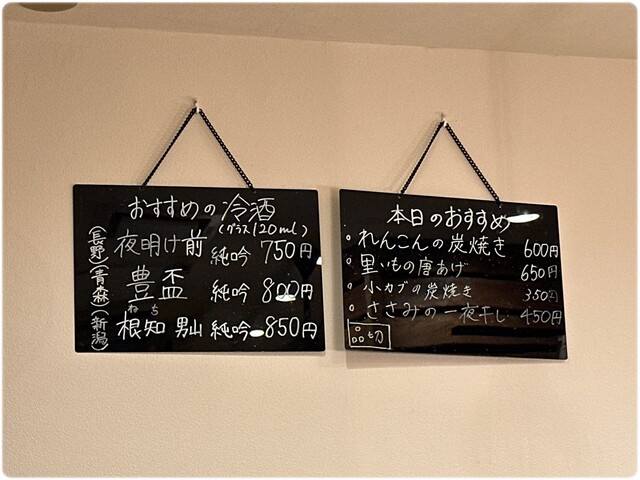 おすすめの冷酒
(グラス120ml)
(長野) 夜明け前 純吟 750円
(青森) 豊盃 純吟 800円
ねち
(新潟) 根知 男山 純吟 850円
本日のおすすめ
。れんこんの炭焼き 600円
。里いもの唐あげ 650円
。小カブの炭焼き 350円
。ささみの一夜干し 450円
品切